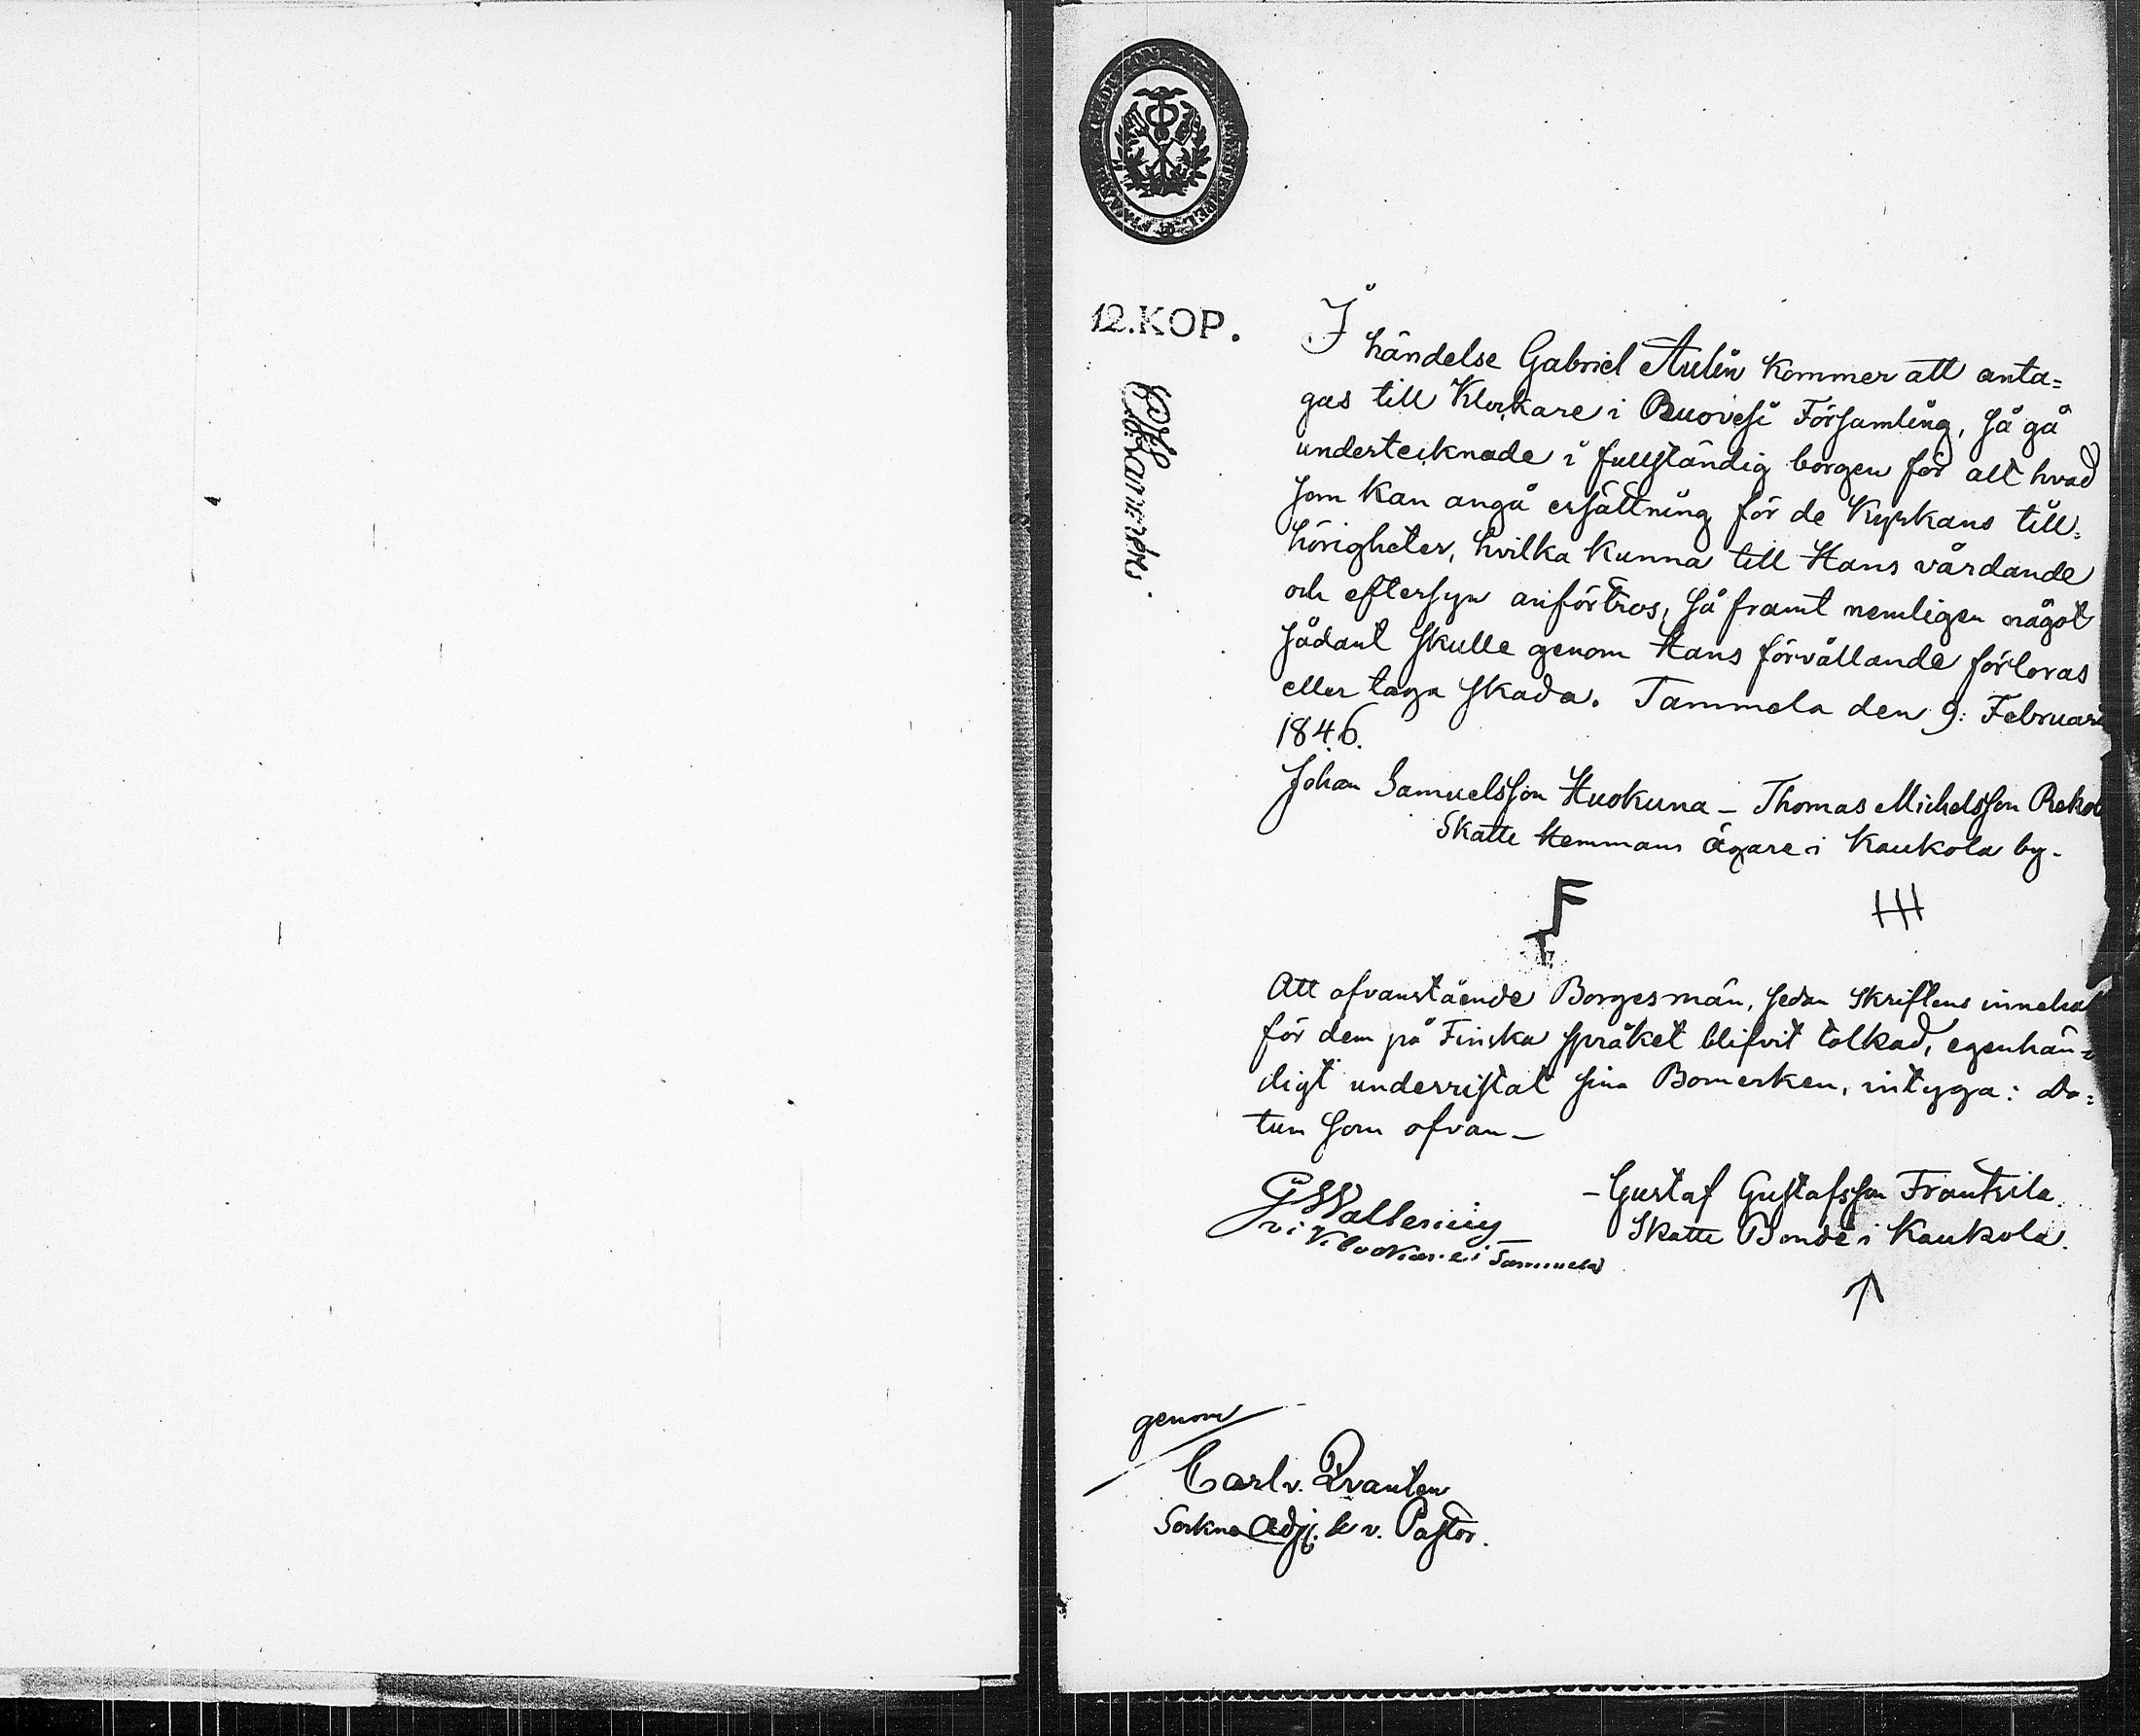 12.KOP.
I händelse Gabriel Aulin kommer att anta=
gas till Klockare i Ruovesi Församling, så gå
undertecknade i fullständig borgen för allt hvad
som kan angå ersättning för de Kyrkans till=
hörigheter, hvilka kunna till Hans vårdande
och eftersyn anförtros, så framt nemligen något
sådant skulle genom Hans förvållande förloras
eller taga skada. Tammela den 9: Februari
1846.
Johan Samuelsson Huokuna – Thomas Michelsson Reko
Skatte Hemmans Ägare i Kaukola by.
Att ofvanstående Borgesmän, sedan Skriftens innehål
för dem på Finska språket blifvit tolkad, egenhän=
digt underristat sina Bomerken, intyga: Da=
tum som ofvan –
G Wallenius
vi Klockare i Tammela
– Gustaf Gustafsson Frantsila.
Skatte Bonde i Kaukola.
genom
Carl v. Qvanten
Sockne Adj. &c v. Pastor.